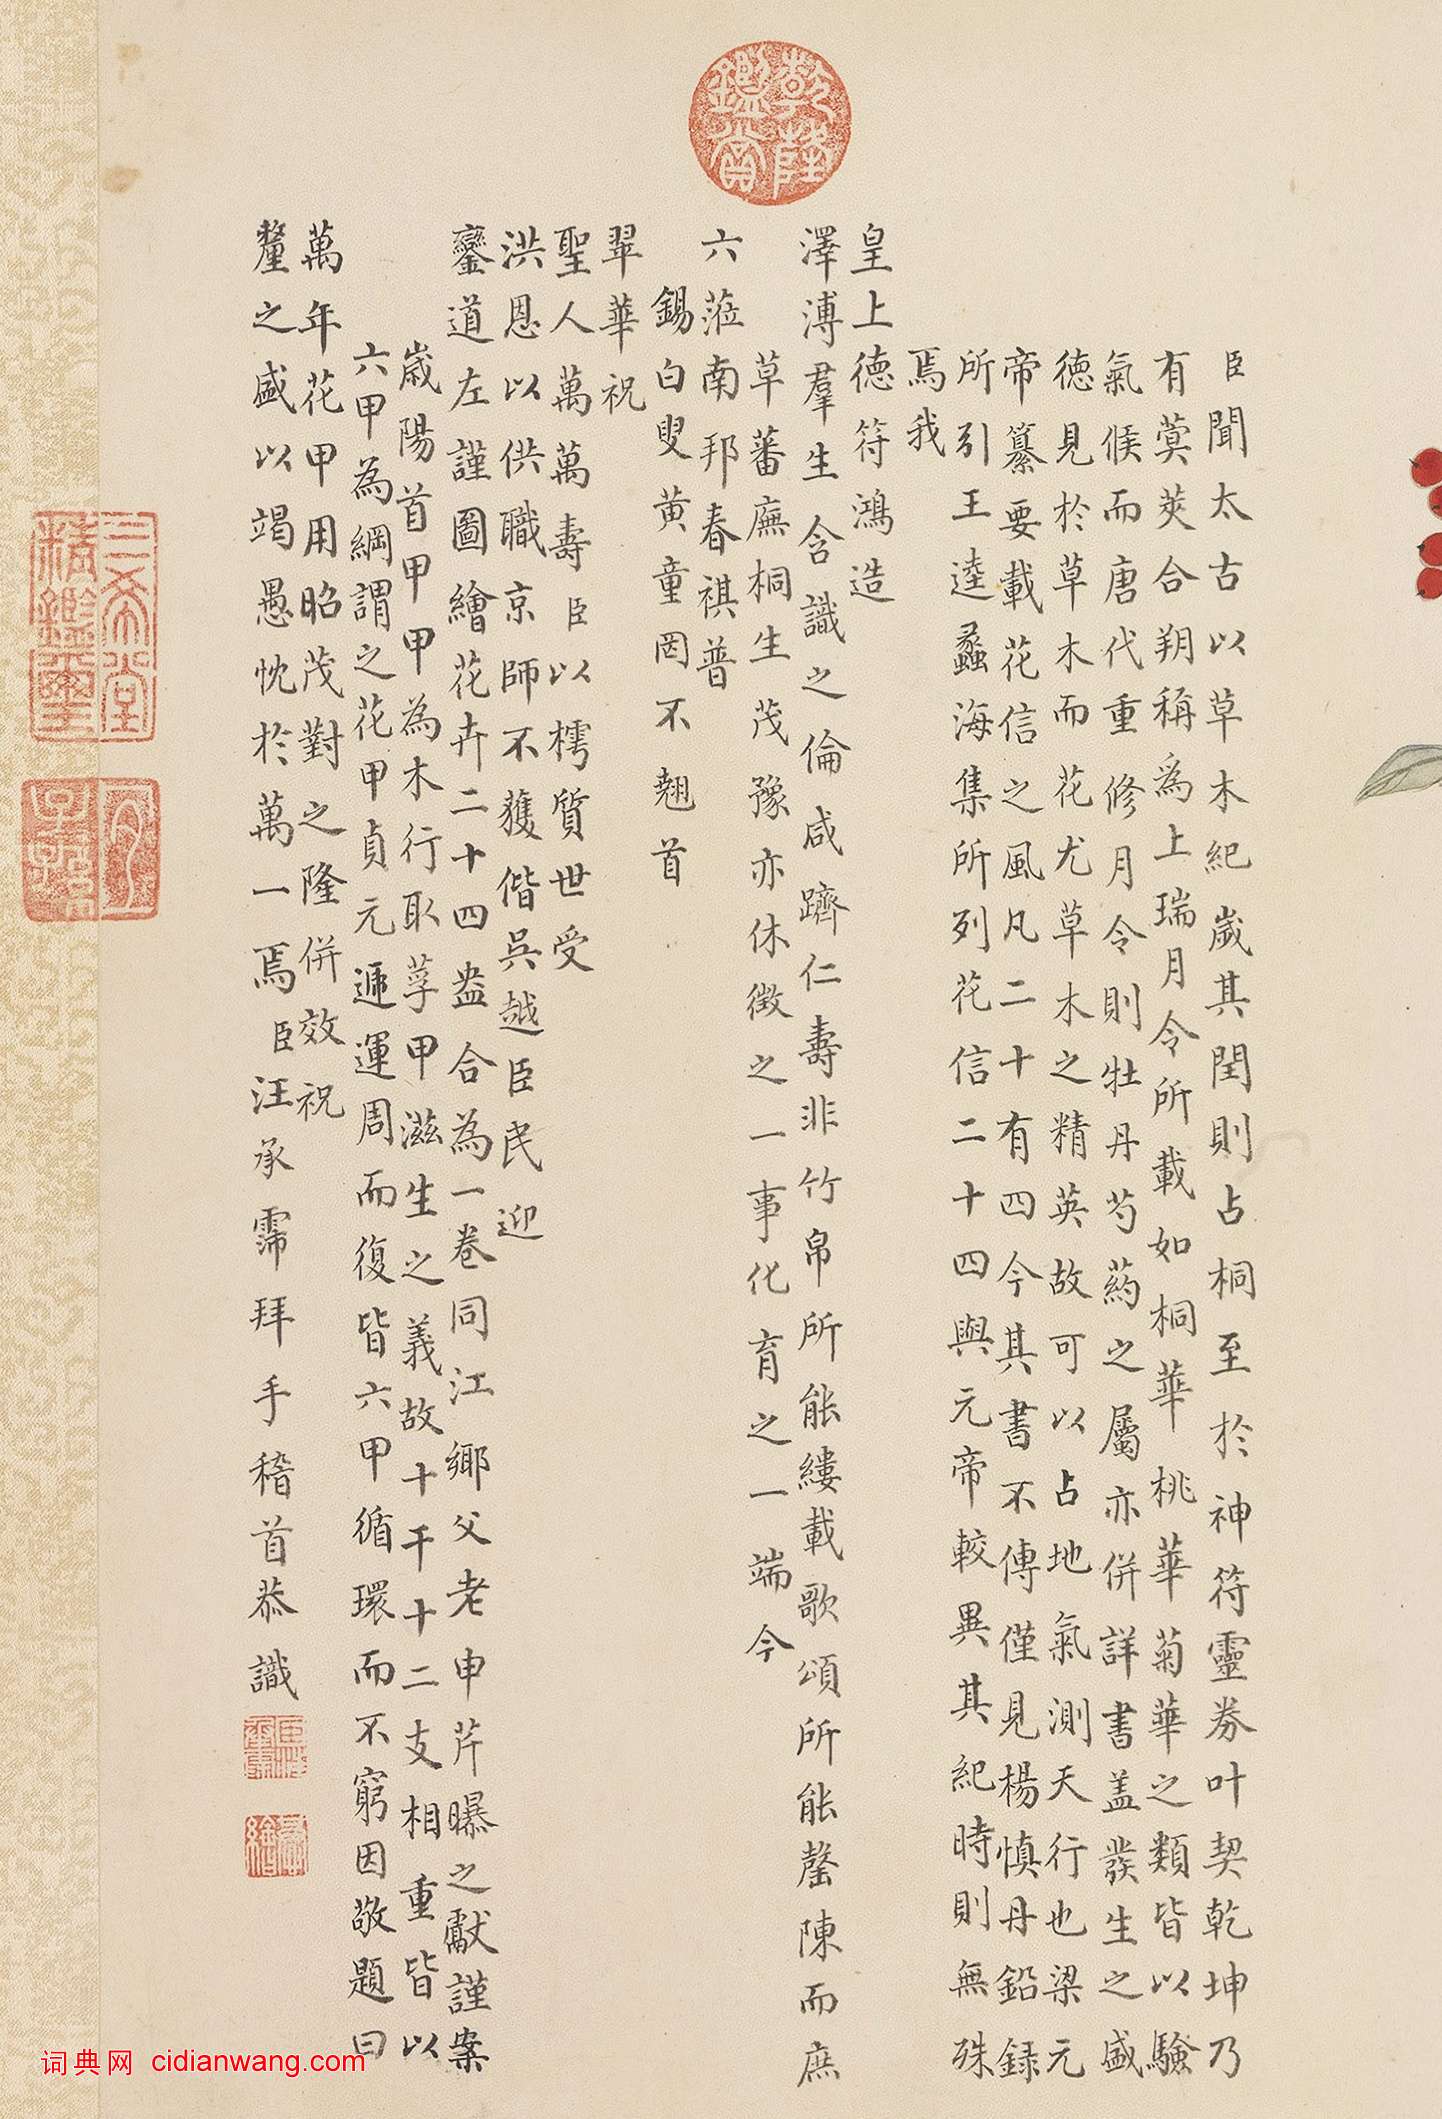 臣聞太古以草木紀歲其閏則占桐至於神符靈券叶契乾坤乃
有蓂莢合朔稱為上瑞月令所載如桐華桃華菊華之類皆以驗
氣候而唐代重修月令則牡丹芍葯之屬亦併詳書盖發生之盛
德見於草木而花尤草木之精英故可以占地氣測天行也梁元
帝纂要載花信之風凡二十有四今其書不傳僅見楊慎丹鉛録
所引王逵蠡海集所列花信二十四與元帝較異其紀時則無殊
焉我
皇上德符鴻造
澤溥羣生含識之倫咸躋仁壽非竹帛所能縷載歌頌所能罄陳而庶
草蕃廡桐生茂豫亦休徵之一事化育之一端今
六蒞南邦春祺普
錫白叟黄童罔不翹首
翠華祝
聖人萬萬壽臣以樗質世受
洪恩以供職京師不獲偕吳越臣民迎
鑾道左謹圖繪花卉二十四盎合為一卷同江鄉父老申芹曝之獻謹案
歲陽首甲甲為木行取莩甲滋生之義故十干十二支相重皆以
六甲為綱謂之花甲貞元遞運周而復皆六甲循環而不窮因敬題曰
萬年花甲用昭茂對之隆併效祝
釐之盛以竭愚忱於萬一焉臣汪承霈拜手稽首恭識
乾隆鑑賞
三希堂精鑑璽
宜子孫
詞典网 cidianwang.com